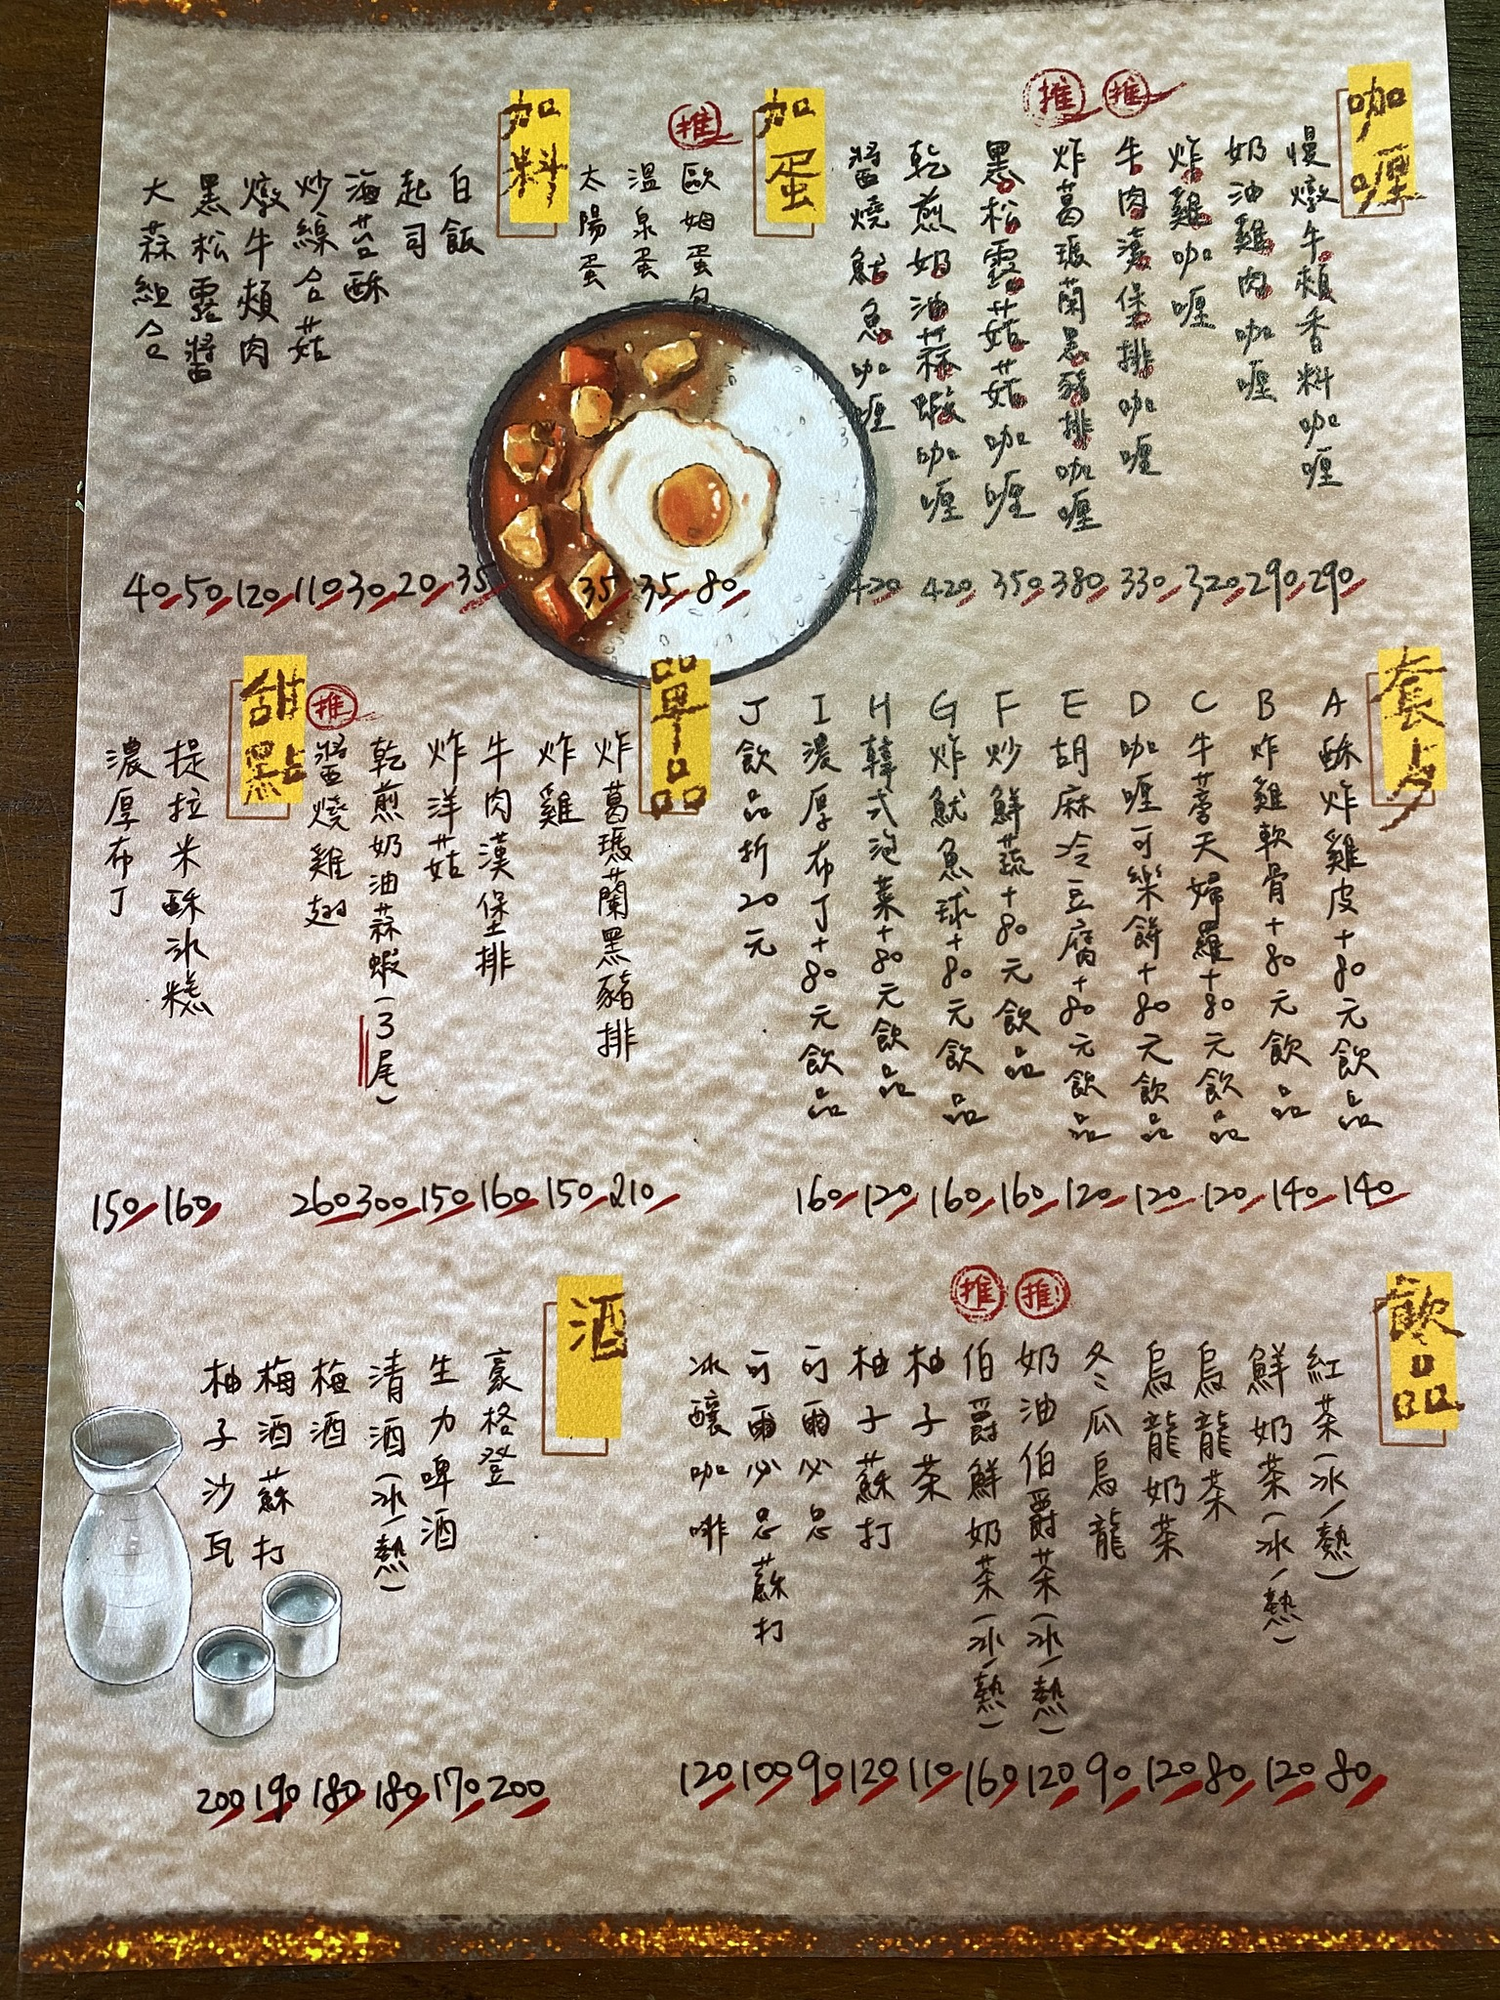 咖哩
慢燉牛頰香料咖哩 290
奶油雞肉咖哩 290
炸雞咖哩 320
推
牛肉漢堡排咖哩 330
推
炸葛瑪蘭黑豬排咖哩 380
黑松露菇菇咖哩 350
乾煎奶油蒜蝦咖哩 420
醬燒魷魚咖哩 420
加蛋
推
歐姆蛋包 80
溫泉蛋 35
太陽蛋 35
加料
白飯 35
起司 20
海苔酥 30
炒綜合菇 110
燉牛頰肉 120
黑松露醬 50
大蒜組合 40
套餐
A 酥炸雞皮+80元飲品 140
B 炸雞軟骨+80元飲品 140
C 牛蒡天婦羅+80元飲品 120
D 咖哩可樂餅+80元飲品 120
E 胡麻冷豆腐+80元飲品 120
F 炒鮮蔬+80元飲品 160
G 炸魷魚球+80元飲品 160
H 韓式泡菜+80元飲品 120
I 濃厚布丁+80元飲品 160
J 飲品折20元
單品
炸葛瑪蘭黑豬排 210
炸雞 150
牛肉漢堡排 160
炸洋菇 150
乾煎奶油蒜蝦(3尾) 300
推
醬燒雞翅 260
甜點
提拉米酥冰糕 160
濃厚布丁 150
飲品
紅茶(冰/熱) 80
鮮奶茶(冰/熱) 120
烏龍茶 80
烏龍奶茶 120
冬瓜烏龍 90
推!
奶油伯爵茶(冰/熱) 120
推
伯爵鮮奶茶(冰/熱) 160
柚子茶 110
柚子蘇打 120
可爾必思 90
可爾必思蘇打 100
冰釀咖啡 120
酒
豪格登 200
生力啤酒 170
清酒(冰/熱) 180
梅酒 180
梅酒蘇打 190
柚子沙瓦 200